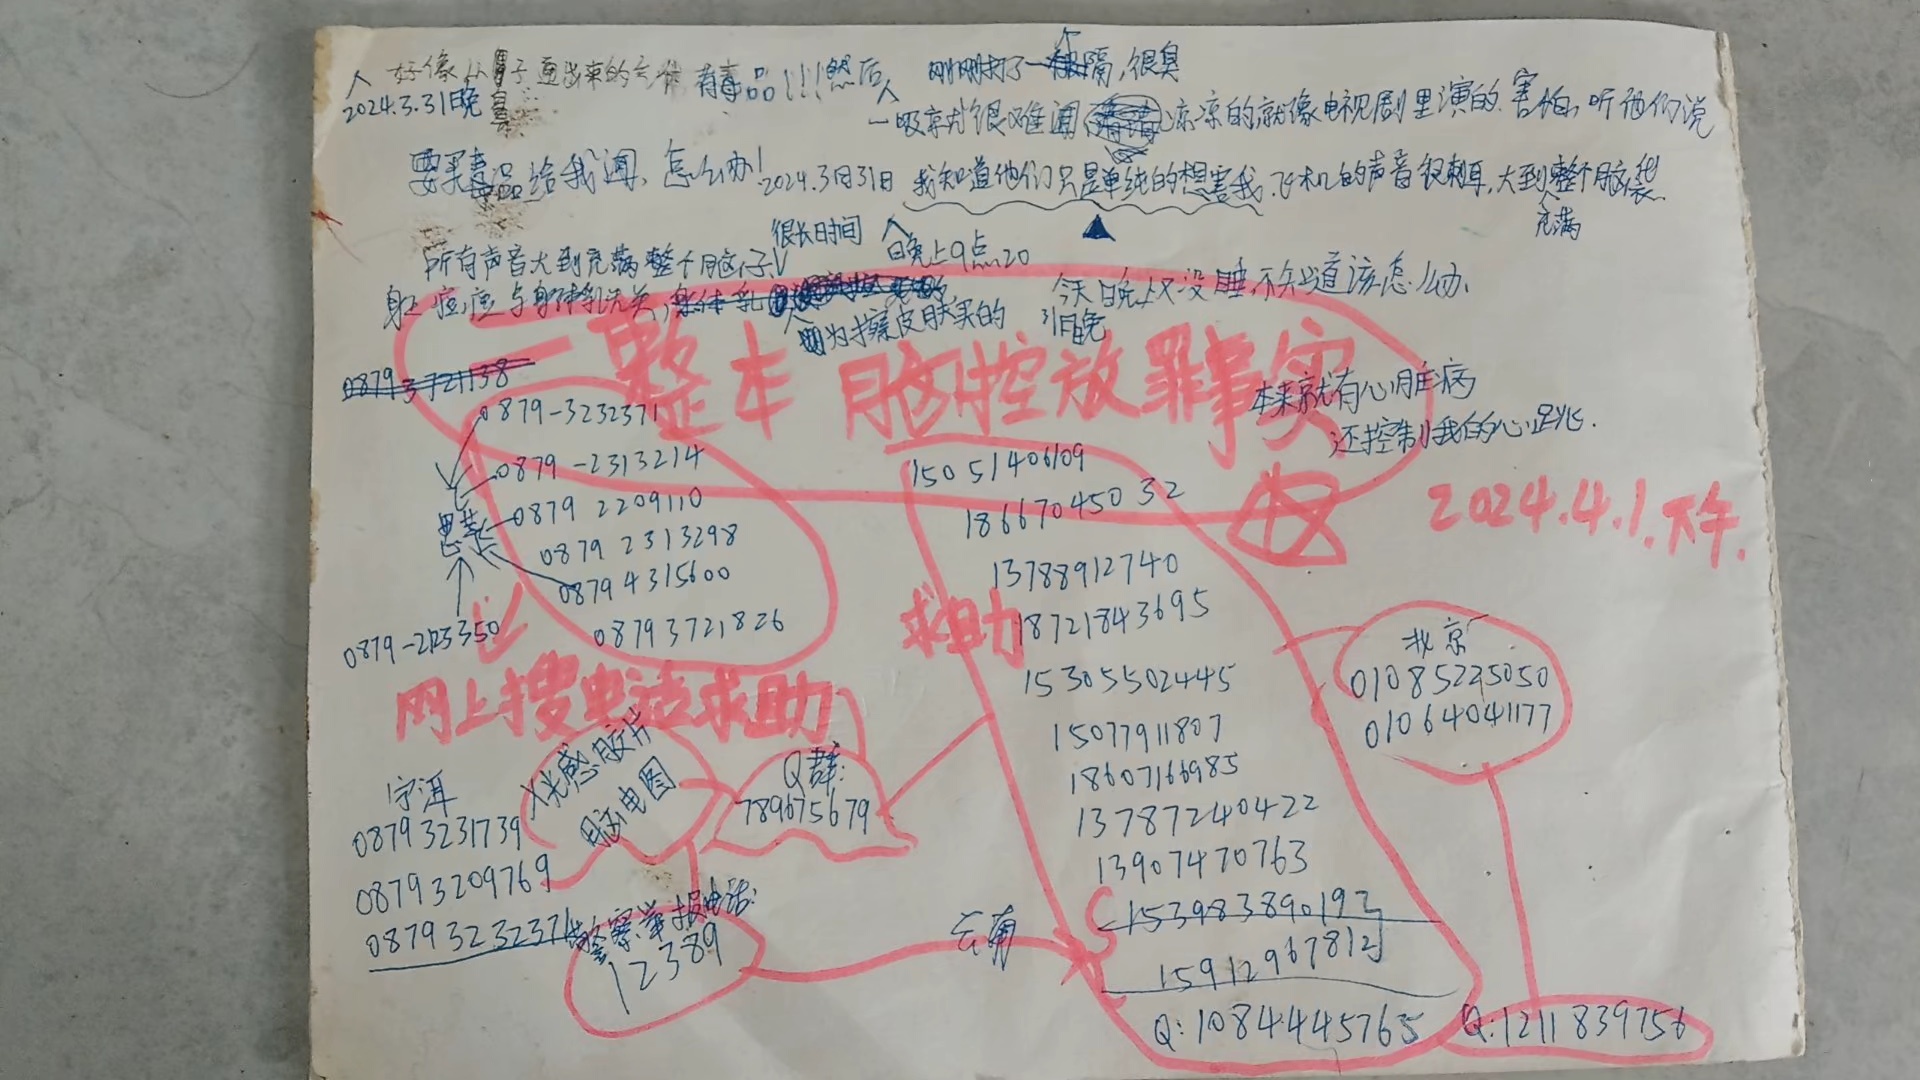 好像从鼻子里出来的气体有毒品!!!然后 刚刚打了一个隔,很臭
2024.3.31晚
一吸就很难闻 凉凉的就像电视剧里演的 害怕,听他们说
要买毒品给我闻,怎么办!2024.3月31日 我知道他们只是单纯的想害我.飞机的声音很刺耳,大到充满整个脑袋.
很长时间
所有声音大到充满整个脑仔 晚上9点20
身上痘痘与身体乳无关,身体乳
因为擦皮肤买的
今天晚上又没睡,不知道该怎么办.
31日晚
一整本脑控放罪事实
本来就有心脏病
还控制我的心跳.
2024.4.1.下午.
0879 3721138
0879-3232371
0879-2313214
0879 2209110
思茅
0879 2313298
0879 4315600
0879-2123350
0879 3721826
网上搜电话求助
求助
15051406109
18667045032
13788912740
18721843695
15305502445
15077911807
18607166985
13787240422
13907470763
15398389019
15912967812
云南
Q:1084445765
北京
01085225050
01064041177
Q:1211839756
X光感胶片
脑电图
Q群:
789675679
宁洱
0879 3231739
0879 3209769
0879 3232371
警察举报电话:
12389